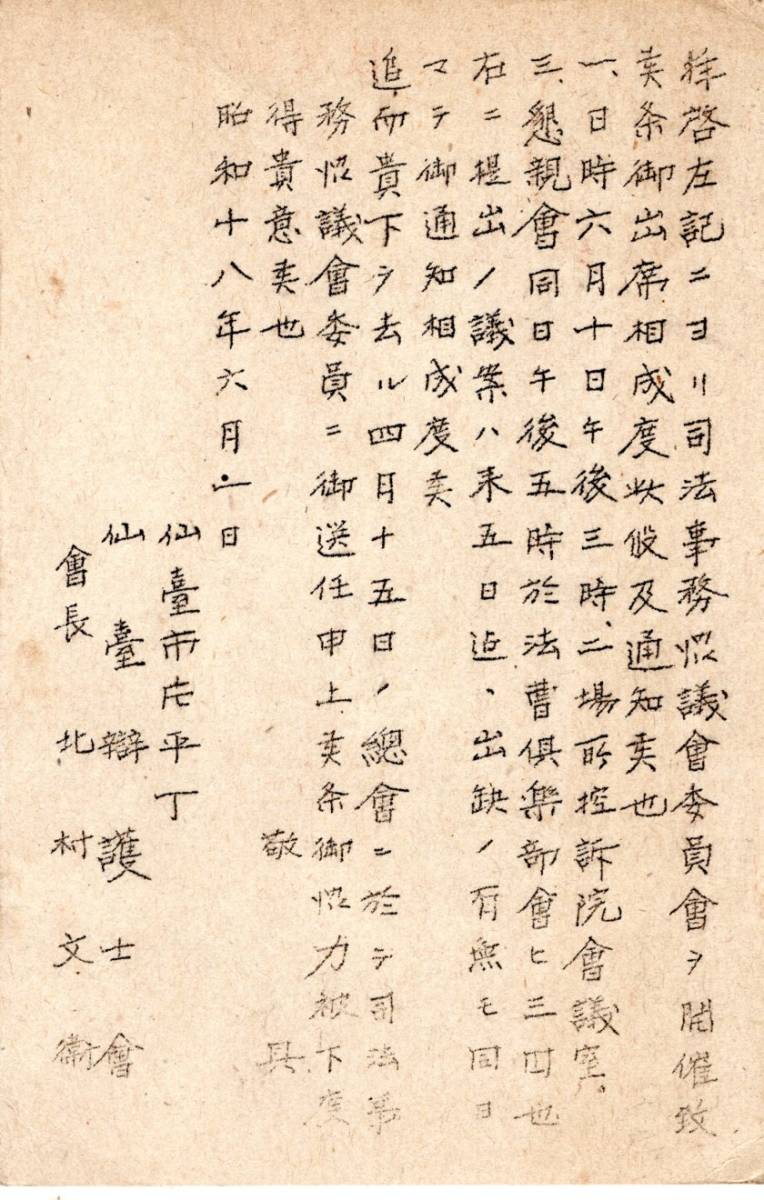 拝啓左記ニヨリ司法事務協議會委員會ヲ開催致
候条御出席相成度此段及通知候也
一、日時六月十日午後三時、二場所控訴院會議室。
三、懇親會同日午後五時於法曹俱樂部會ヒ三四也
右ニ提出ノ議案ハ来五日迠、出缺ノ有無モ同日
マテ御通知相成度候
追而貴下ヲ去ル四月十五日ノ總會ニ於テ司法事
務協議會委員ニ御送任申上候条御協力被下度
得貴意候也 敬具
昭和十八年六月一日
仙臺市片平丁
仙臺辯護士會
會長 北村文衛